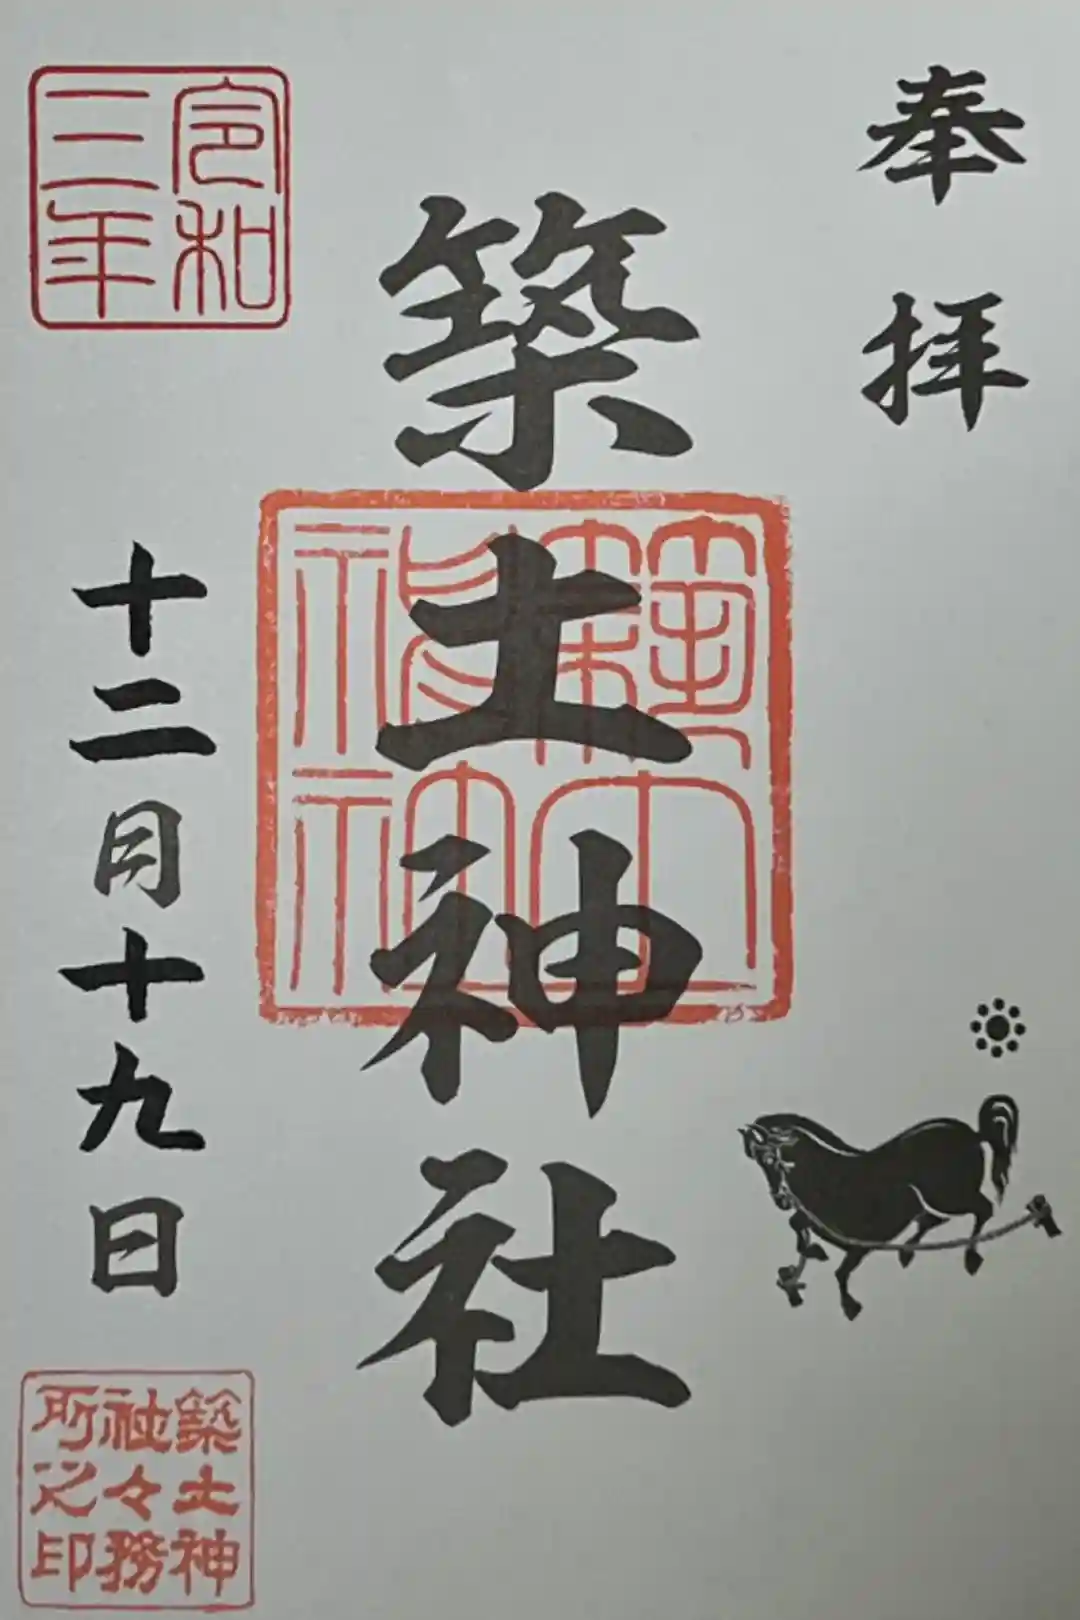 奉拝
築土神社
築土神社
令和三年
十二月十九日
築土神社々務所之印